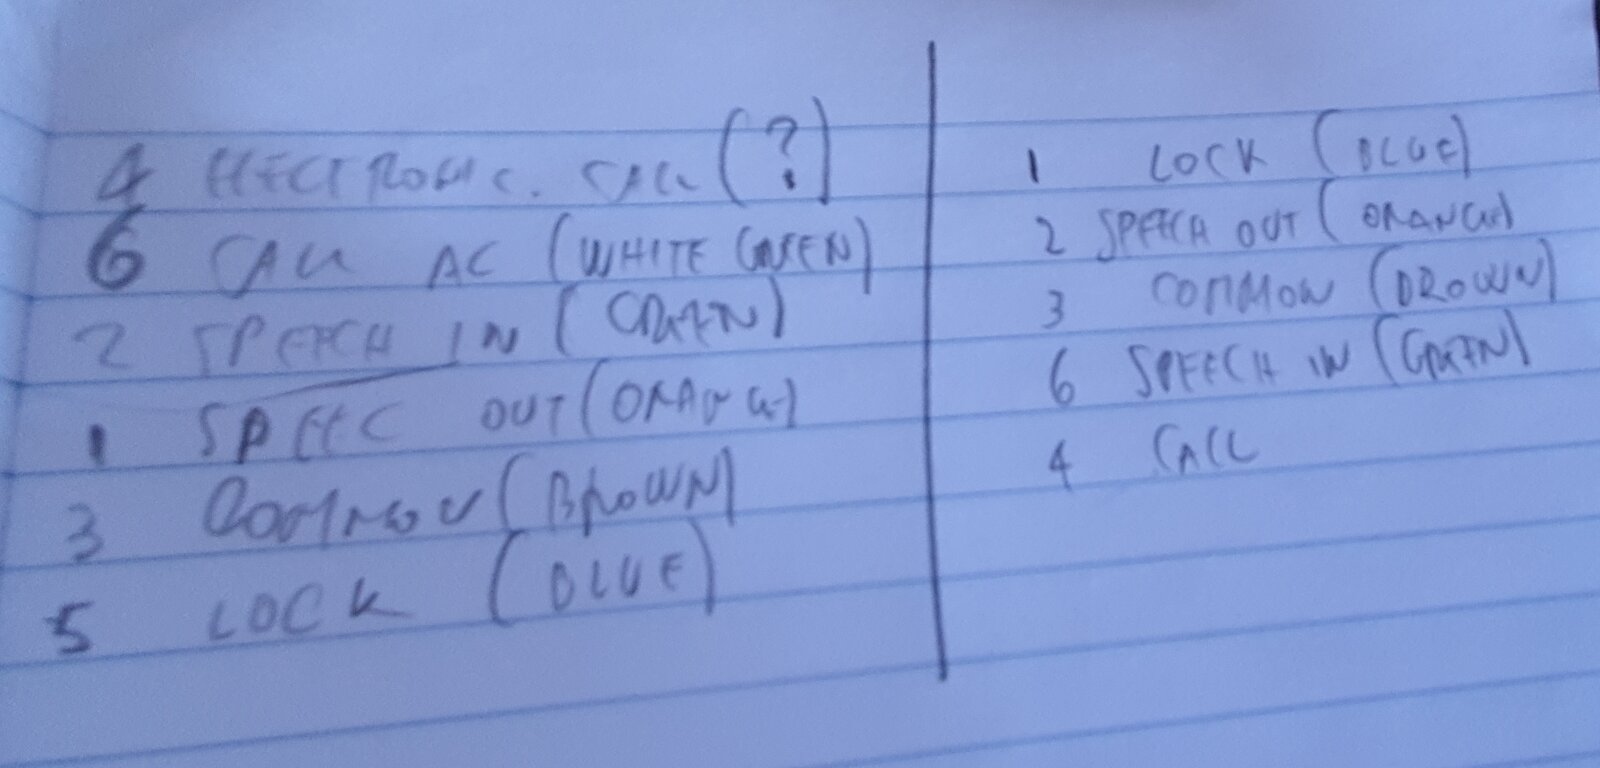 4 ELECTRONIC. CALL (?)
6 CALL AC (WHITE GREEN)
2 SPEECH IN (GREEN)
1 SPEEC OUT (ORANGE)
3 COMMON (BROWN)
5 LOCK (BLUE)
1 LOCK (BLUE)
2 SPEECH OUT (ORANGE)
3 COMMON (BROWN)
6 SPEECH IN (GREEN)
4 CALL